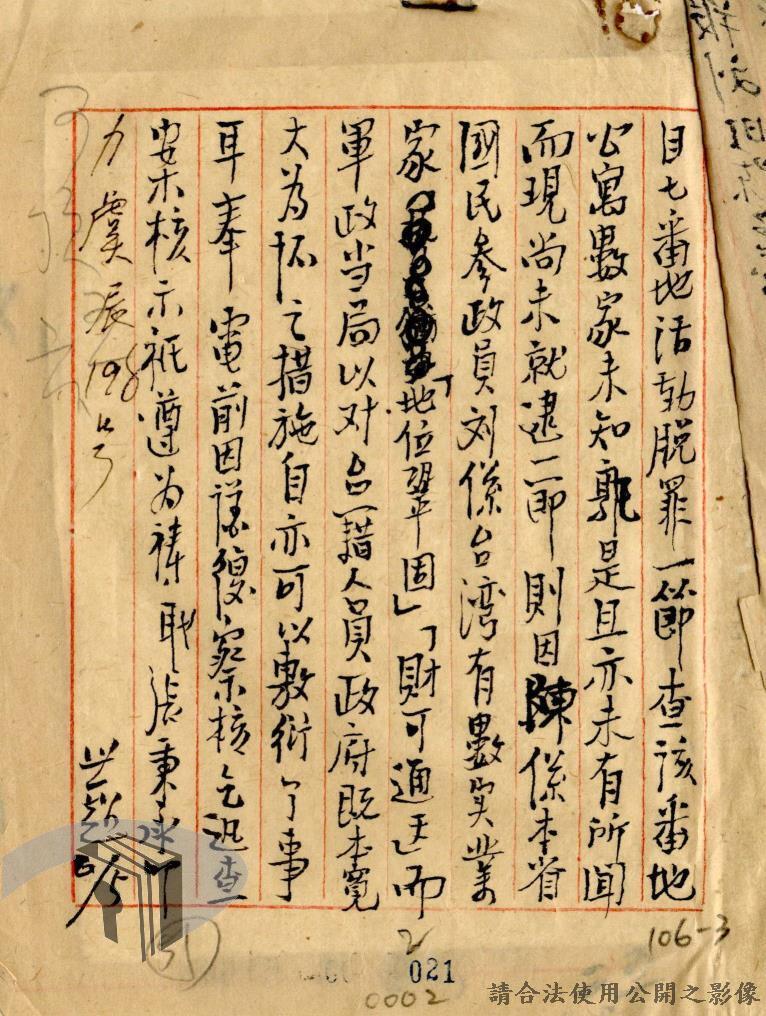 目七番地活動脱罪一節查該番地
公寓數家未知郭是且亦未有所聞
而現尚未就逮一節則因陳係本省
國民參政員刘係台湾有數实業
家「地位鞏固」「財可通天」而
軍政当局以对台籍人員政府既本寬
大為怀之措施自亦可以敷衍了事
耳奉電前因謹復察核乞迅查
案核示祗遵为禱職張秉承叩
力虞辰198号
106-3
2
021
0002
請合法使用公開之影像